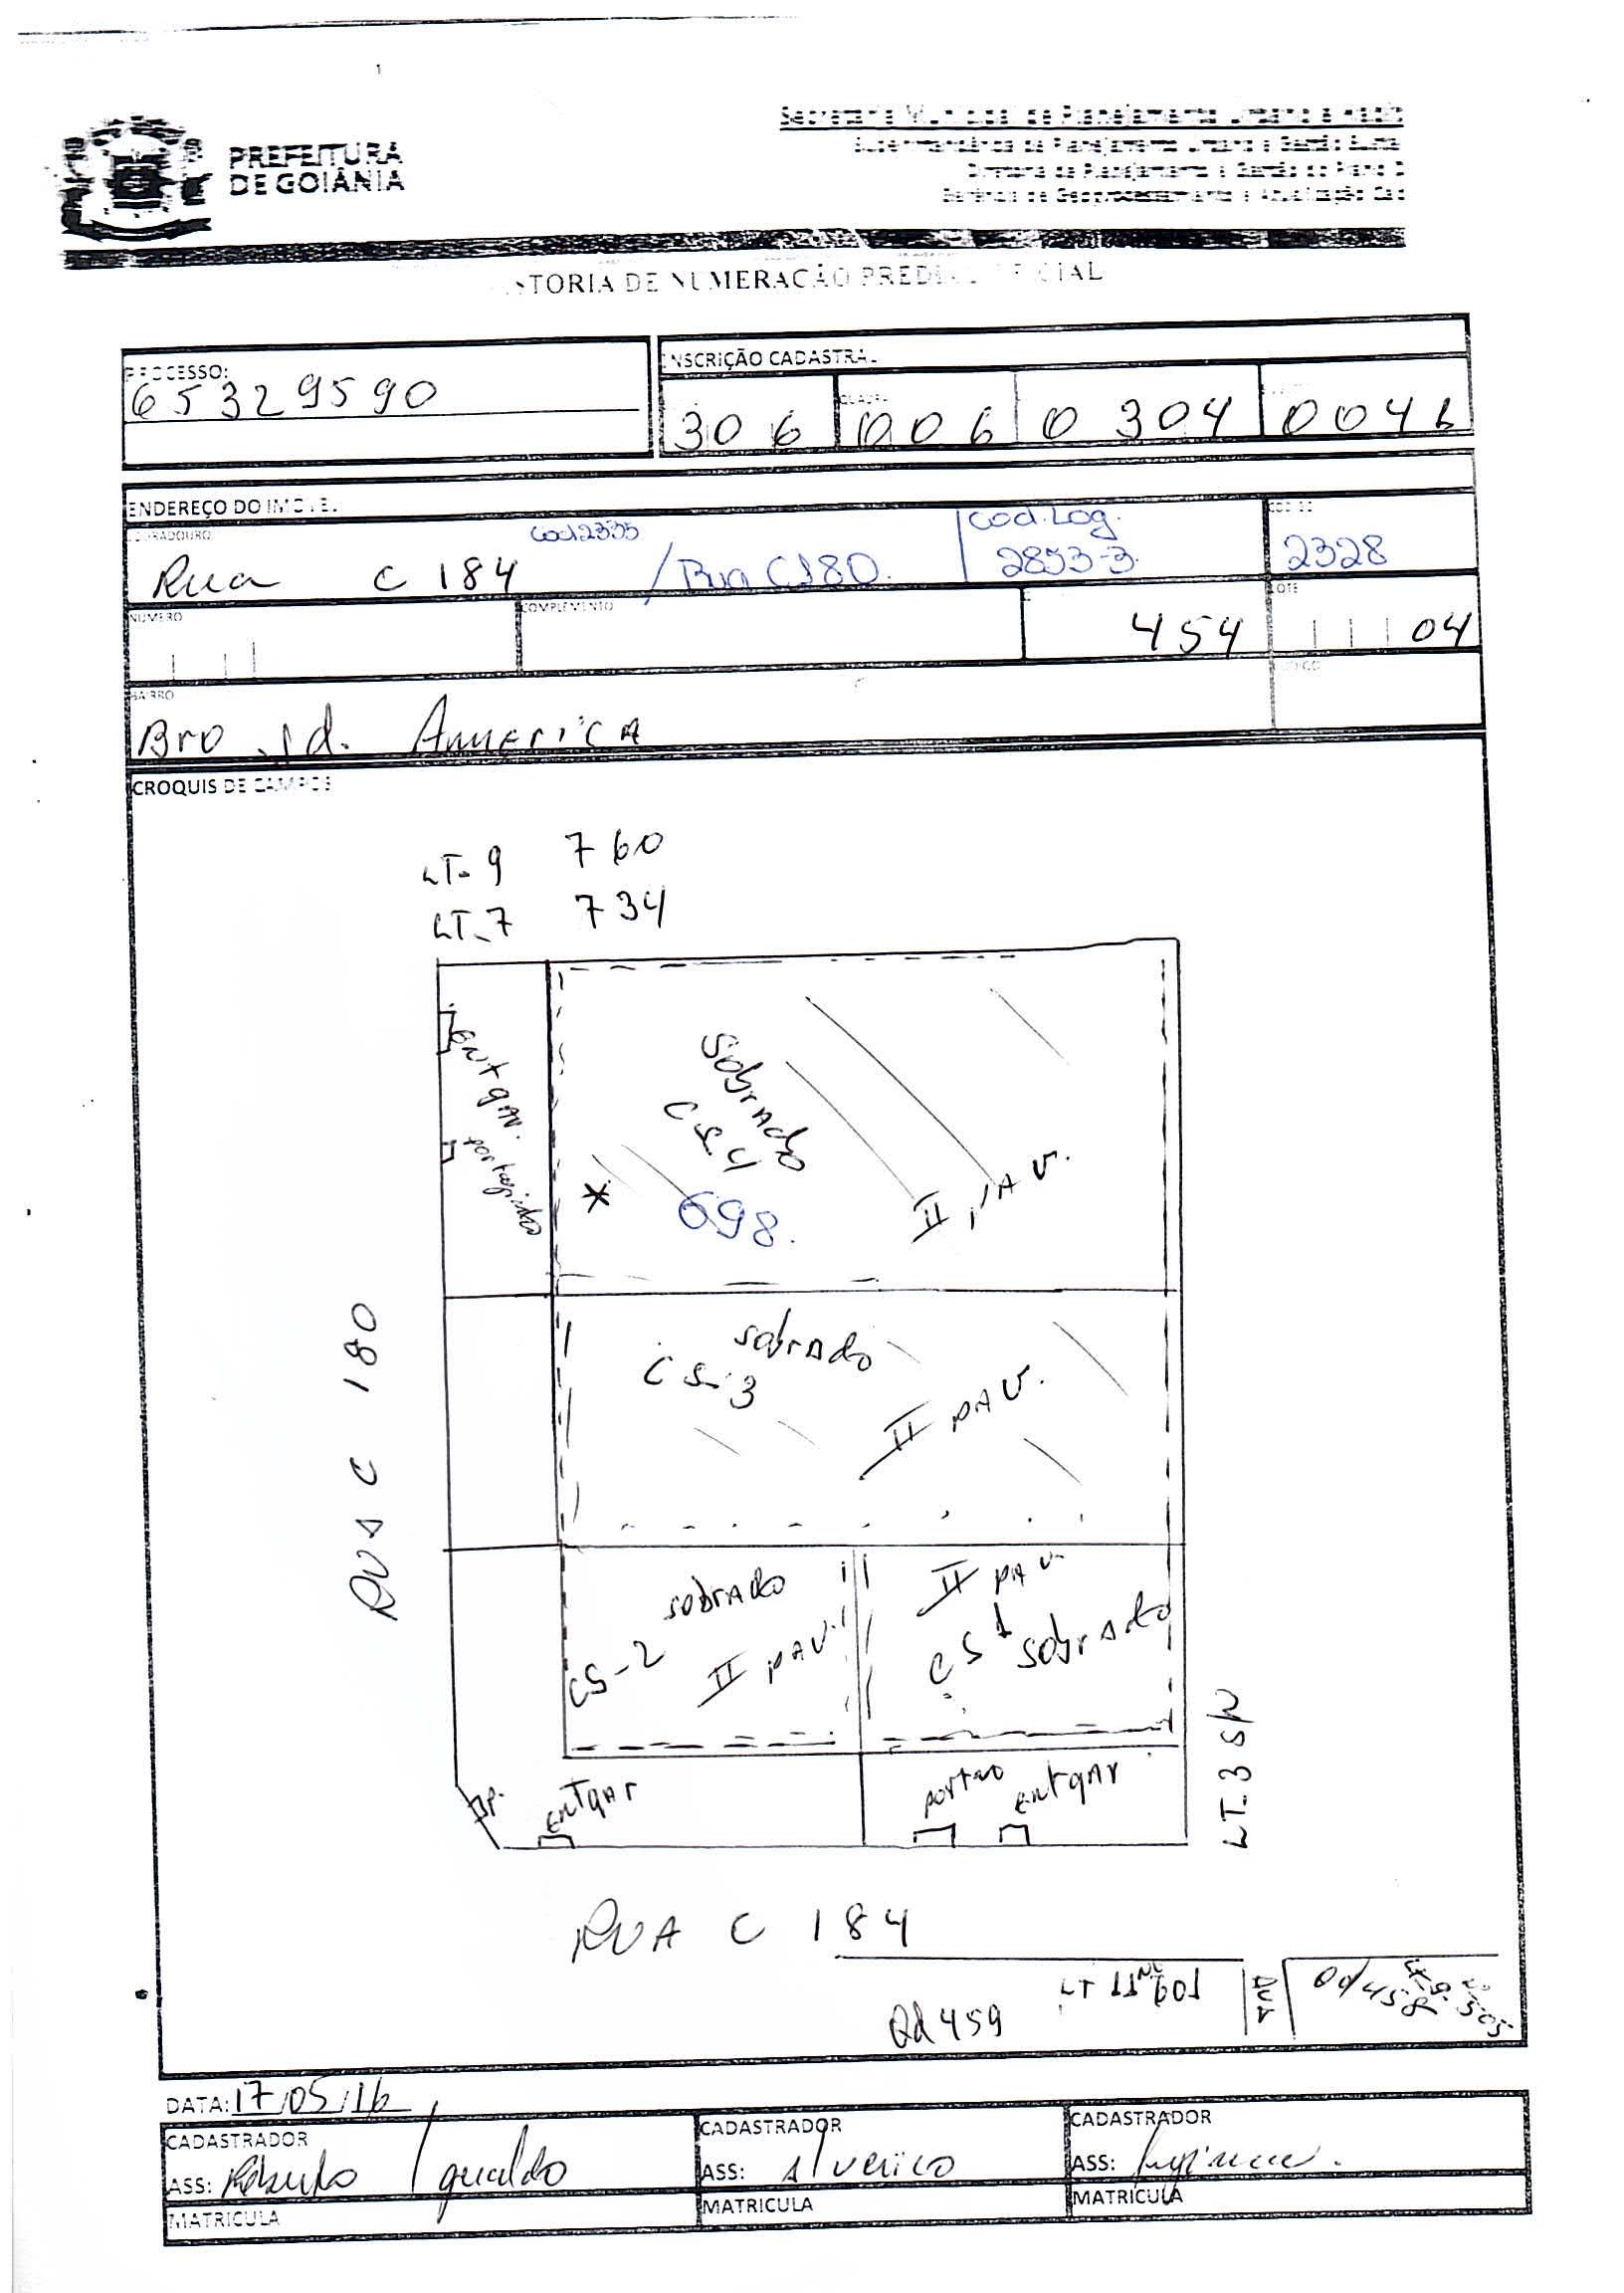 PREFEITURA
DE GOIÂNIA
Secretaria Municipal de Planejamento Urbano e
Superintendência de Planejamento Urbano e Gestão
Diretoria de Planejamento e Gestão do Plano D
Gerência de Geoprocessamento e Atualização Cad
DE NUMERAÇÃO
PROCESSO:
65329590
INSCRIÇÃO CADASTRAL
QUADRA
306 006 0304 004
ENDEREÇO DO IMÓVEL
LOGRADOURO
Rua C 184 cod 2335 / Rua C180. Cod. Log. 2853-3.
CODIGO
2328
NUMERO
COMPLEMENTO
454
LOTE
04
BAIRRO
CODIGO
Bro Jd. America
CROQUIS DE CAMPOS
LT. 9 760
LT. 7 734
ENT gAV.
Sobrado
CS. 4
II PAV.
* 698.
RUA C 180
sobrado
CS. 3
II PAV.
sobrado
CS-2
II PAV.
II PAV.
CS 1
sobrado
LT. 3 S/N
P.
ENTgAr
portão
entgar
RUA C 184
LT 11 Nº 601
Qd 459
RUA
Qd 458
DATA: 17/05/16
CADASTRADOR
ASS:
MATRICULA
CADASTRADOR
ASS:
MATRICULA
CADASTRADOR
ASS:
MATRÍCULA